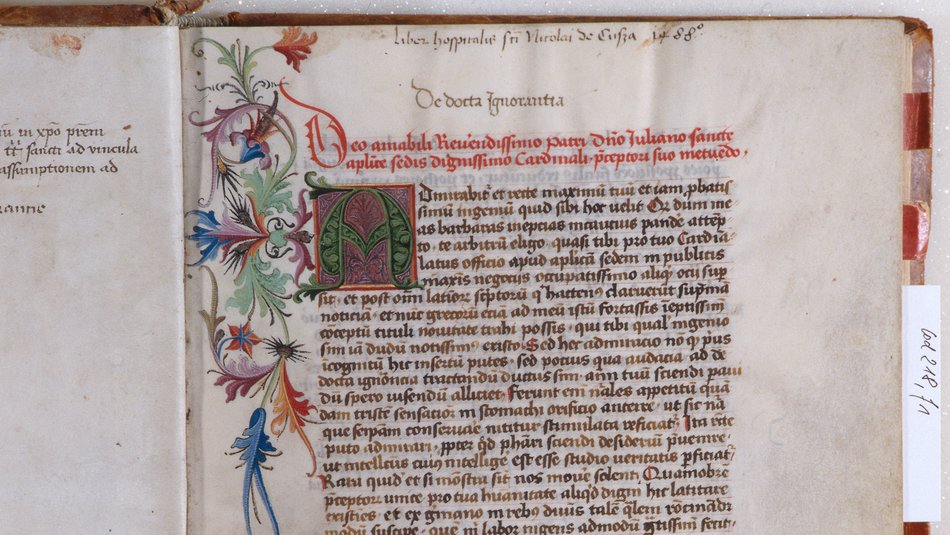 ũ in xpo prẽm
tt̃ sancti ad vincula
assumptionem ad
liber hospitalis sct̃i Nicolai de Cusza 1488º
De docta Ignorantia
Deo amabili Reuẽndissimo Patri dño Juliano sancte
aplice sedis dignissimo Cardinali p̃ceptori suo metuẽdo
Admirabit̃ et recte maximũ tuũ et iam p̃batis
simũ ingeniũ quid sibi hoc velit Qr dum me
as barbaras ineptias incautius pande attẽp
to te arbitrũ eligo quasi tibi pro tuo Cardia
latus officio apud aplicã sedem in publicis
maxis negocijs occupatissimo aliqd ocij sup
sit et post oĩm latiorũ sc̃ptorũ q̃ hactenus claruerũt sup̃ma
noticiã et nũc grecorũ eciã ad meũ istũ fortassis ĩeptissim
cõceptũ tituli nouitate trahi possis qui tibi qual ingenio
sim iã dudũ notissimus existo Sed hec admiracio no q p̃us
icognitũ hic insertũ putes sed potius qua audacia ad de
docta ignõncia tractandũ ductus sim aĩm tuũ sciendi p
dũ spero visendũ alliciet Ferunt em nãles appetitũ quã
dam tristẽ sensatiõer in stomachi orificio anteire ut sic nã
que seip̃am conseruare nititur stimulata reficiat Ita recte
puto admirari p̃pter qd ph̃ari sciendi desideriũ p̃uenire
ut intellctus cuius intelligẽ est esse studio veritatis p̃ficiat
Rara quid et si mõstra sint nos mouẽ solent Quamobrẽ
p̃ceptorũ unice pro tua hũanitate aliqd digni hic latitare
existies et ex gmano in rebus diuis talẽ qlem rõcinandi
modũ suscipe quẽ m labor ingens admodũ gtissim fecit
Cod 218, f1